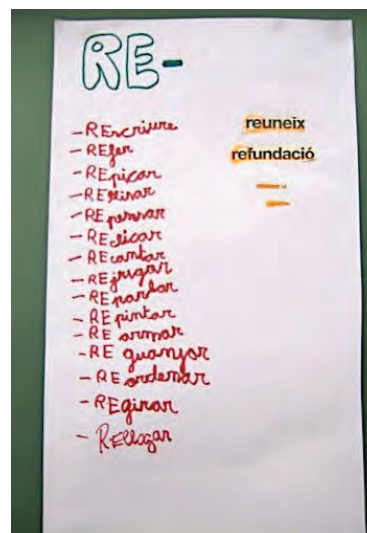 RE-
- REscriure
- REfer
- REpicar
- REmirar
- REpensar
- REclicar
- REcantar
- REjugar
- REparlar
- REpintar
- RE armar
- RE guanyar
- RE ordenar
- REgirar
- RELlogar
reuneix
refundació